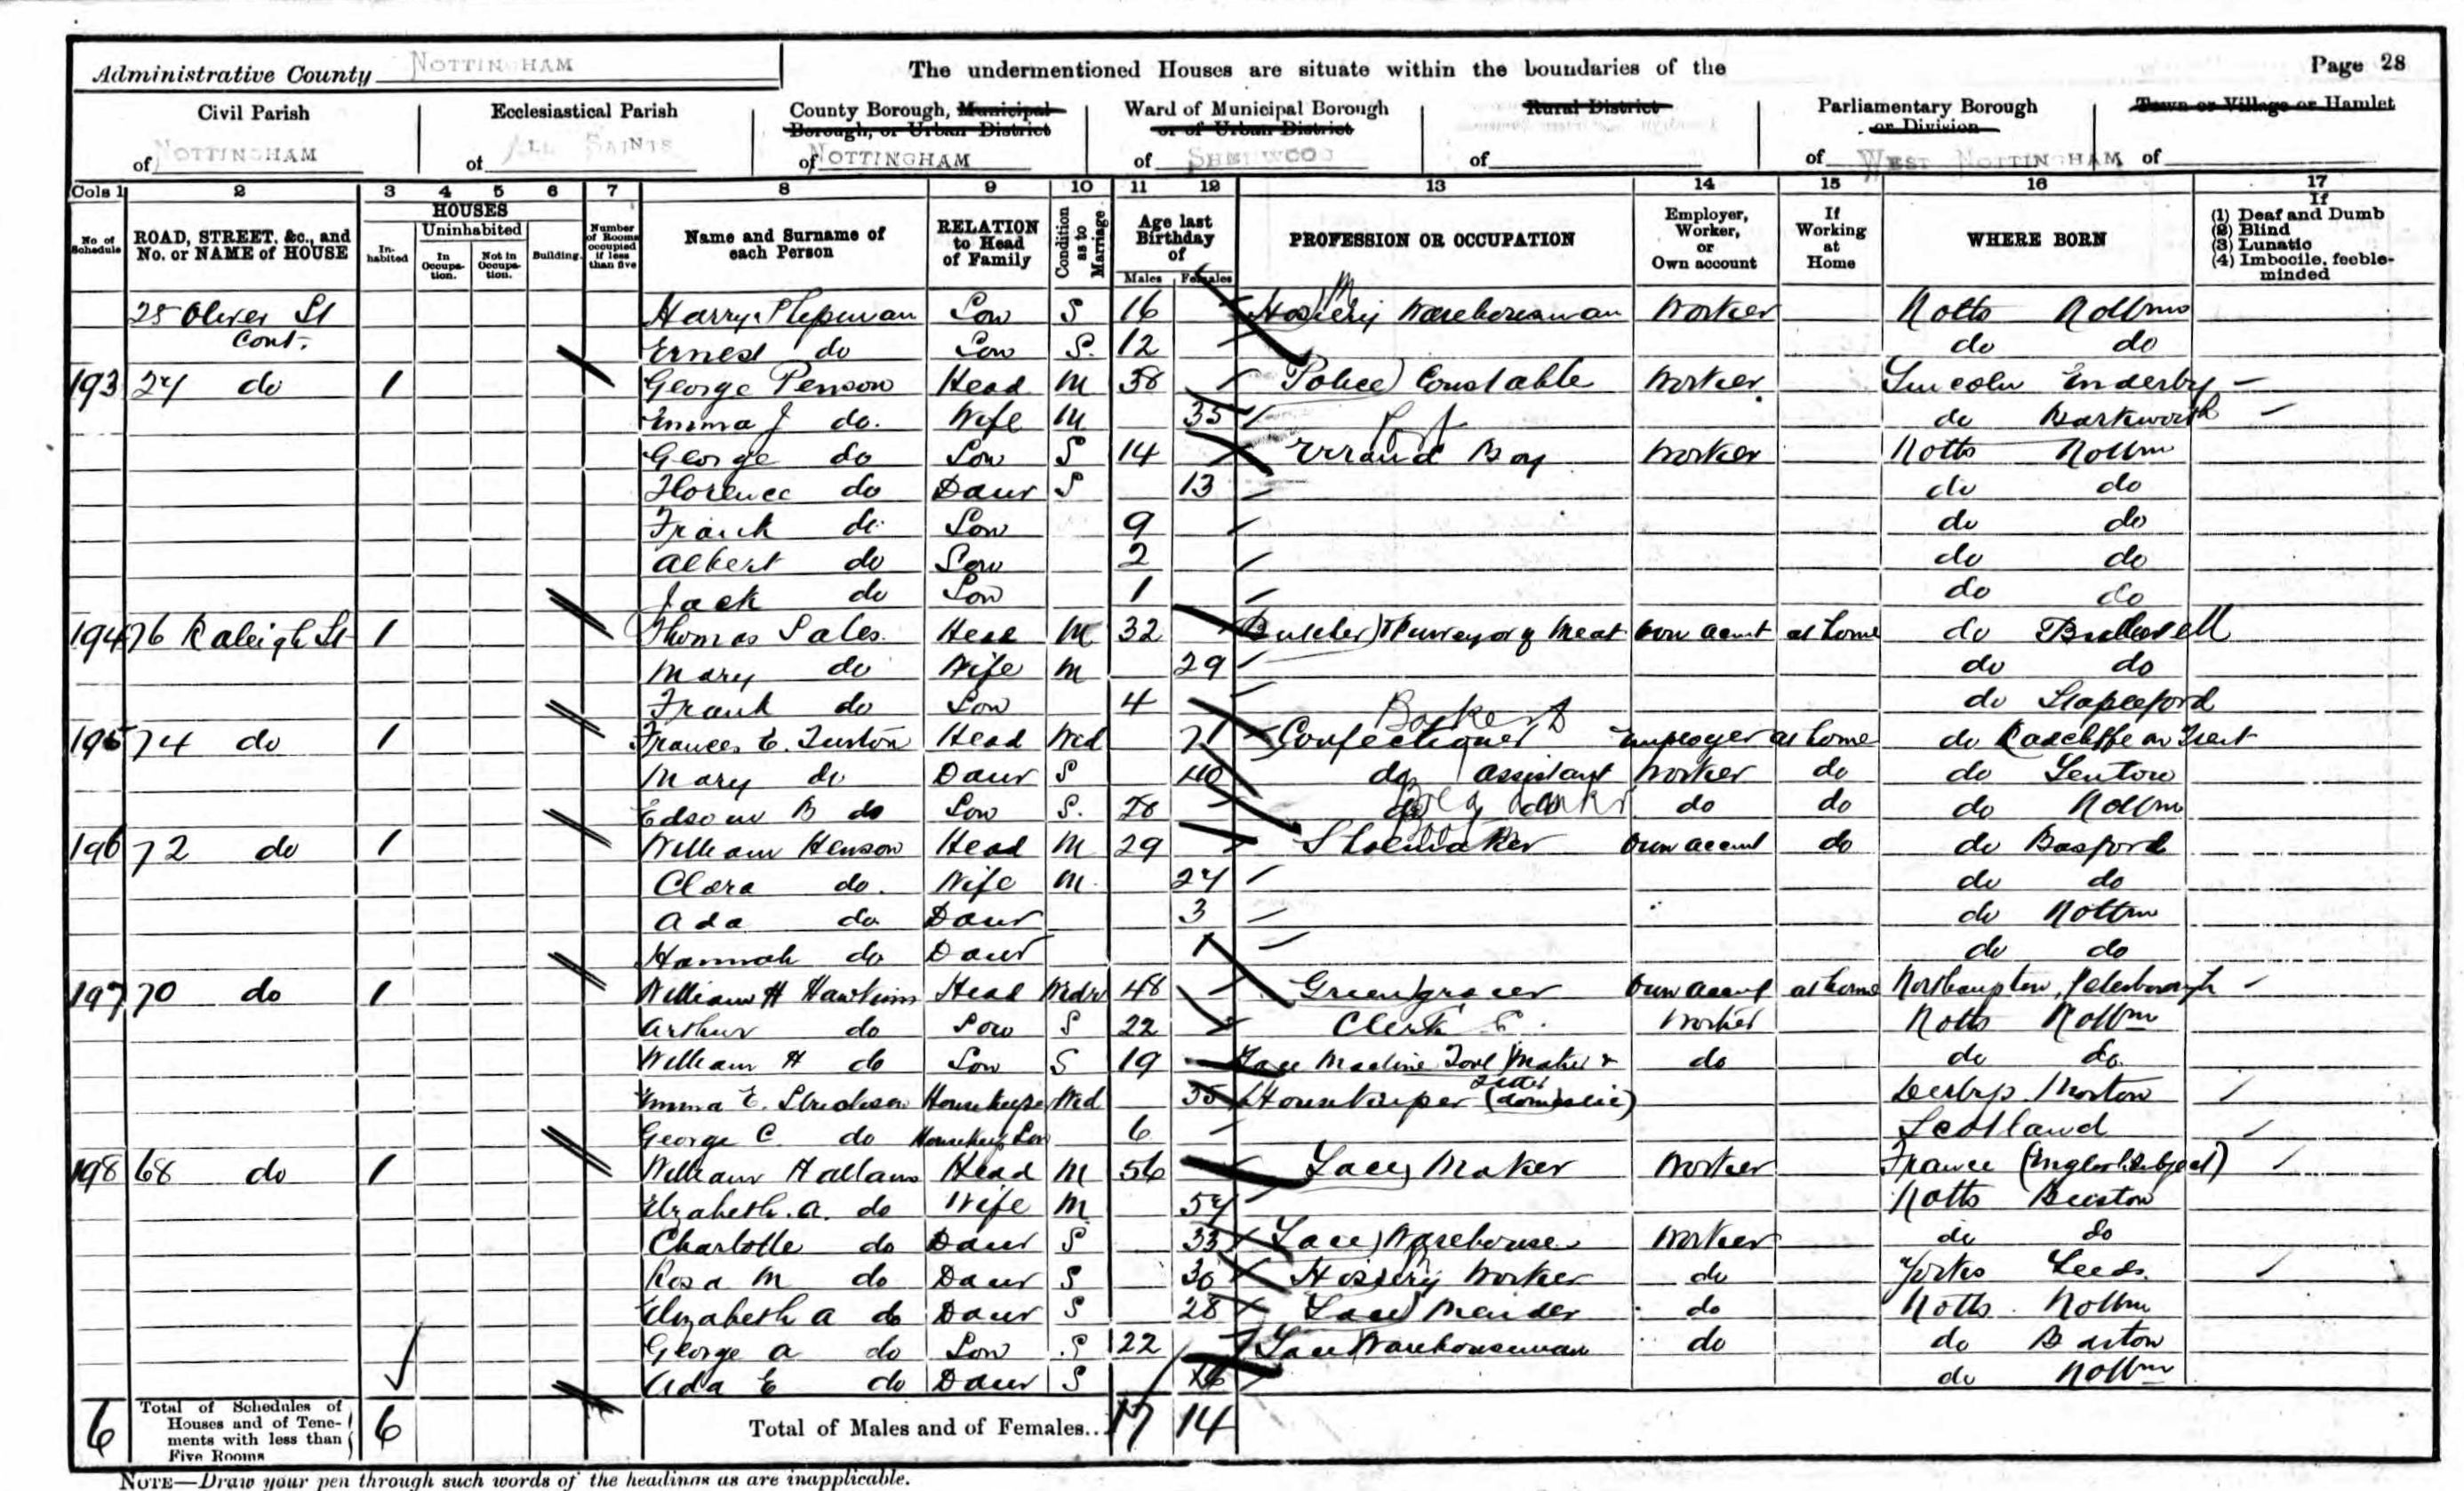 Administrative County NOTTINGHAM The undermentioned Houses are situate within the boundaries of the Page 28
Civil Parish Ecclesiastical Parish County Borough, Municipal Borough, or Urban District Ward of Municipal Borough or of Urban District Rural District Parliamentary Borough or Division Town or Village or Hamlet
of NOTTINGHAM of ALL SAINTS of NOTTINGHAM of SHERWOOD of of WEST NOTTINGHAM of
Cols 1 2 3 4 5 6 7 8 9 10 11 12 13 14 15 16 17
No of Schedule ROAD, STREET, &c., and No. or NAME of HOUSE HOUSES In-habited Uninhabited In Occupa-tion. Not in Occupa-tion. Building. Number of Rooms occupied if less than five Name and Surname of each Person RELATION to Head of Family Condition as to Marriage Age last Birthday of Males Females PROFESSION OR OCCUPATION Employer, Worker, or Own account If Working at Home WHERE BORN If (1) Deaf and Dumb (2) Blind (3) Lunatic (4) Imbecile, feeble-minded
25 Oliver St Harry Son S 16 Hosiery Warehouseman Worker Notts Nottm
Cont. Ernest do Son S. 12 do do
193 27 do 1 George Penson Head M 38 Police Constable Worker Lincoln Enderby
Emma J do. Wife M 35 do Barkworth
George do Son S 14 Errand Boy Worker Notts Nottm
Florence do Daur S 13 do do
Frank do Son 9 do do
Albert do Son 2 do do
Jack do Son 1 do do
194 76 Raleigh St 1 Thomas Sales Head M 32 Butcher Purveyor of Meat Own accnt at home do Bulwell
Mary do Wife M 29 do do
Frank do Son 4 do Stapleford
195 74 do 1 Frances E. Turton Head Wid 71 Confectioner Employer at home do Radcliffe on Trent
Mary do Daur S 40 do assistant Worker do do Lenton
B do Son S. 28 do do do Nottm
196 72 do 1 William Henson Head M 29 Shoemaker Own accnt do do Basford
Clara do. Wife M. 27 do do
Ada do Daur 3 do Nottm
Hannah do Daur 1 do do
197 70 do 1 William H Hawkins Head Widr 48 Greengrocer Own accnt at home Northampton, Peterborough
Arthur do Son S 22 Clerk Worker Notts Nottm
William H do Son S 19 Lace Machine Tool Maker & do do do
Fitter
Emma E. Housekeeper Wid 35 Housekeeper (domestic) Derbys. Morton
George C. do Housekeeps Son 6 Scotland
198 68 do 1 William Hallam Head M 56 Lace Maker Worker France (English Subject)
Elizabeth. A. do Wife M 57 Notts Beeston
Charlotte do Daur S 33 Lace Warehouse Worker do do
Rosa M do Daur S 30 Hosiery Worker do Yorks Leeds
Elizabeth A do Daur S 28 Lace Mender do Notts Nottm
George A do Son S 22 Lace Warehouseman do do
Ada E do Daur S 16 do Nottm
6 Total of Schedules of Houses and of Tene-ments with less than Five Rooms 6 Total of Males and of Females.. 17 14
NOTE—Draw your pen through such words of the headings as are inapplicable.